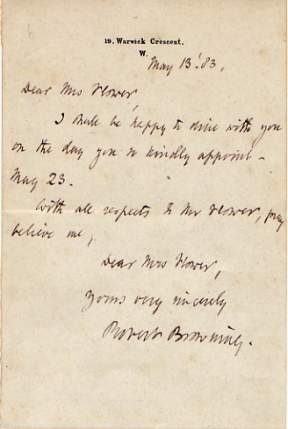 19, Warwick Crescent,
W.
May 13'. 83.
Dear Mrs Flower,
I shall be happy to dine with you
on the day you so kindly appoint –
May 23.
With all respects to Mr Flower, pray
believe me,
Dear Mrs Flower,
yours very sincerely
Robert Browning.